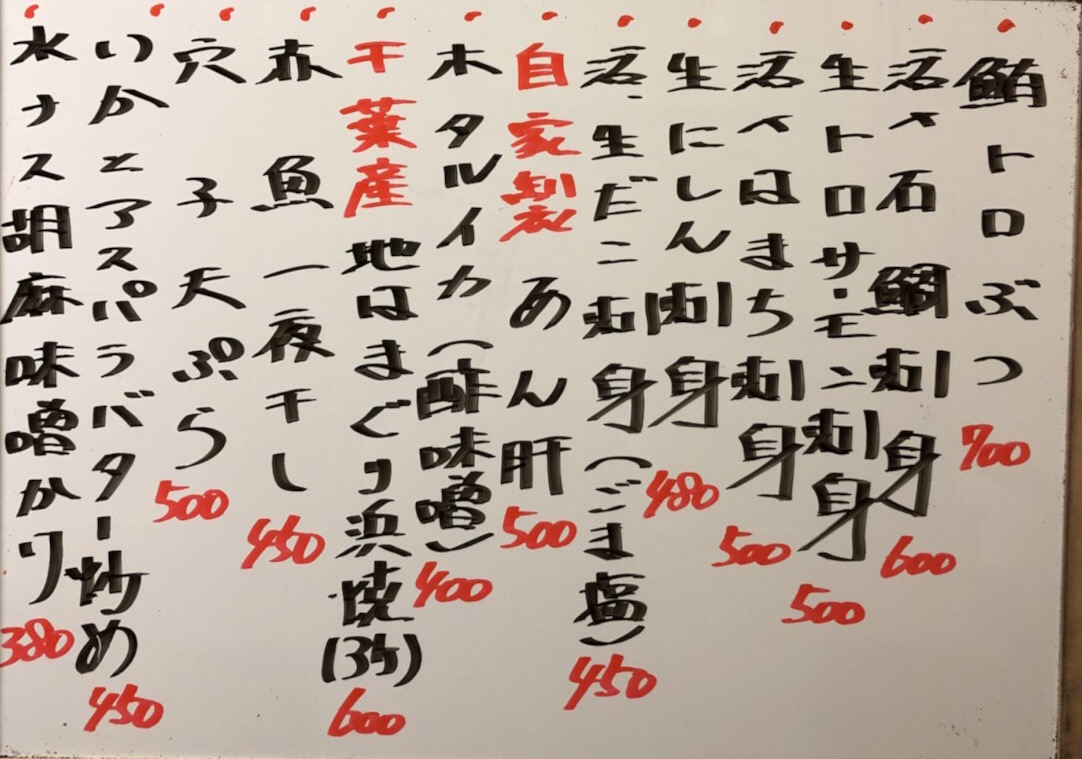 鮪トロぶつ 700
活〆石鯛刺身 600
生トロサーモン刺身 500
活〆はまち刺身 500
生にしん刺身 480
活生だこ刺身(ごま塩) 450
自家製 あん肝 500
ホタルイカ(酢味噌) 400
千葉産 地はまぐり浜焼(3ヶ) 600
赤魚一夜干し 450
穴子天ぷら 500
いかとアスパラバター炒め 450
水ナス胡麻味噌かけ 380